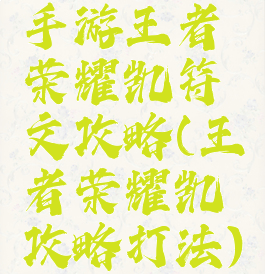 手游王者
荣耀凯符
文攻略(王
者荣耀凯
攻略打法)